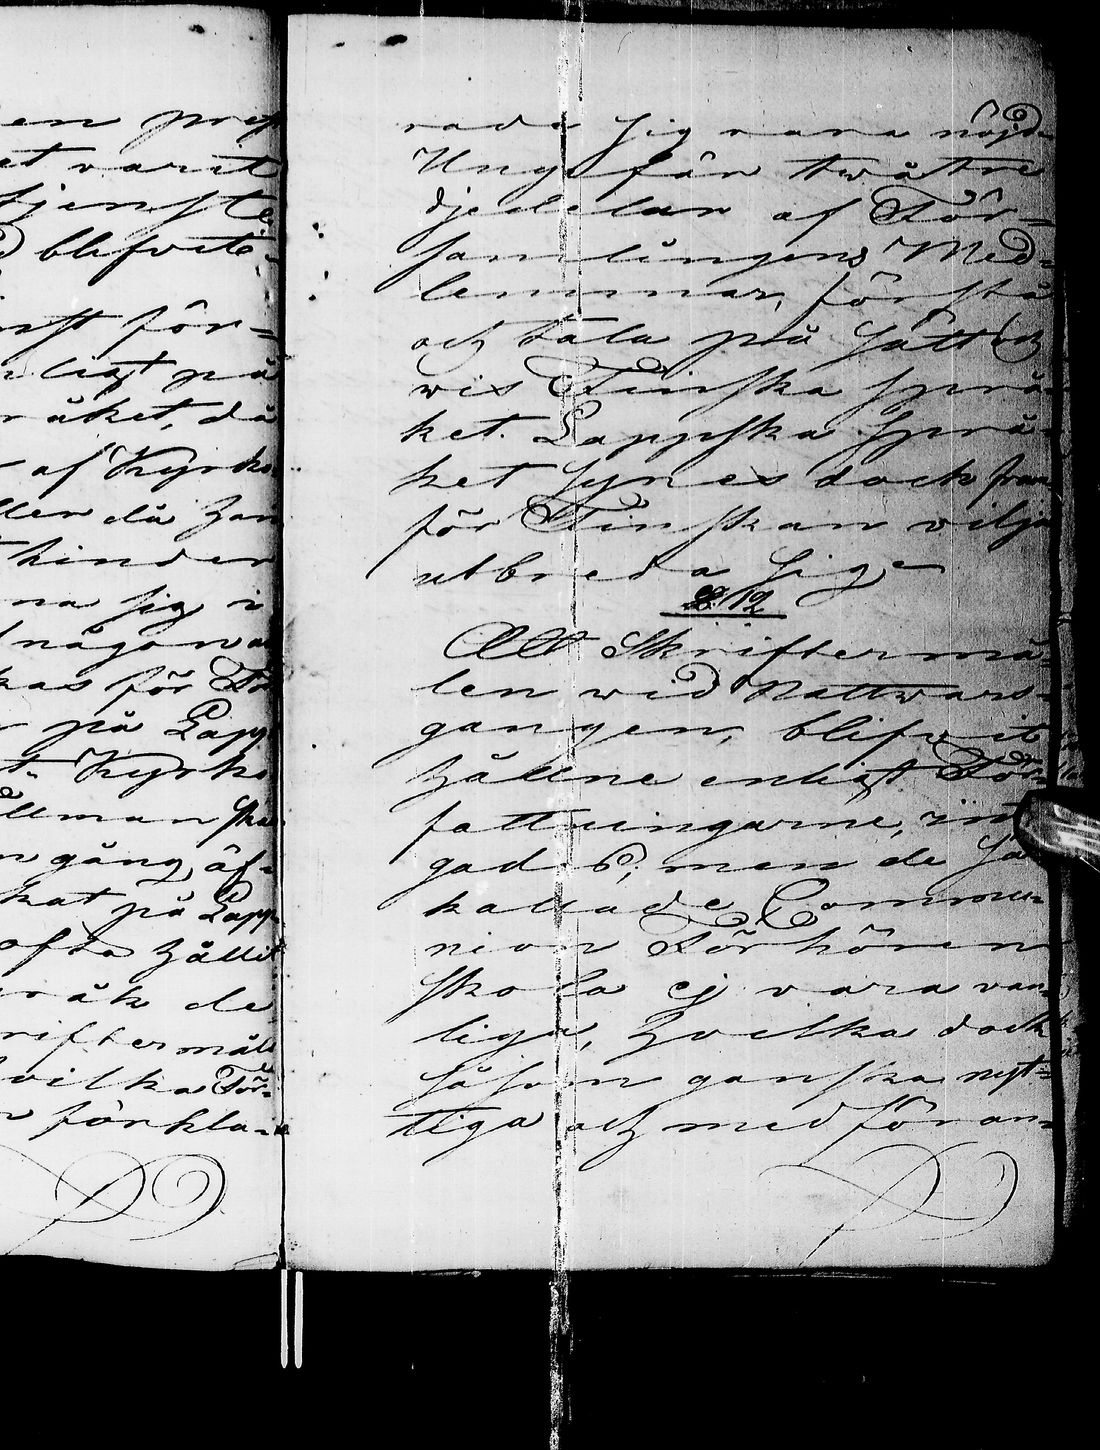 en pres
et varit
tjenste
blifvit
nst för=
ligt på
råket, då
af Kyrko
ller då han
hinder
na sig i
någon
kas för För
på Lapp
Kyrko
llman ska
n gång, åf=
kat på Lapp=
ofta hållit
råk de
riftermåls
hvilka För=
förkla=
rade sig vara nöjd=
Ungefär twåtre
djedelar af För=
samlingens Med=
lemmar, förstå
och tala på sätt och
wis Finska språ=
ket. Lappska Språ=
ket synes dock fram
för Finskan vilja
utbreda sig=
§. 12
Att Skriftermå=
len wid Nattwards=
gangen, blifvit
hållne enligt För=
fattningarne, int
gades, men de så
kallade Commu=
nion Förhören
skola ej vara van=
liga, hvilka dock
såsom ganska nyt=
tiga och med föran=